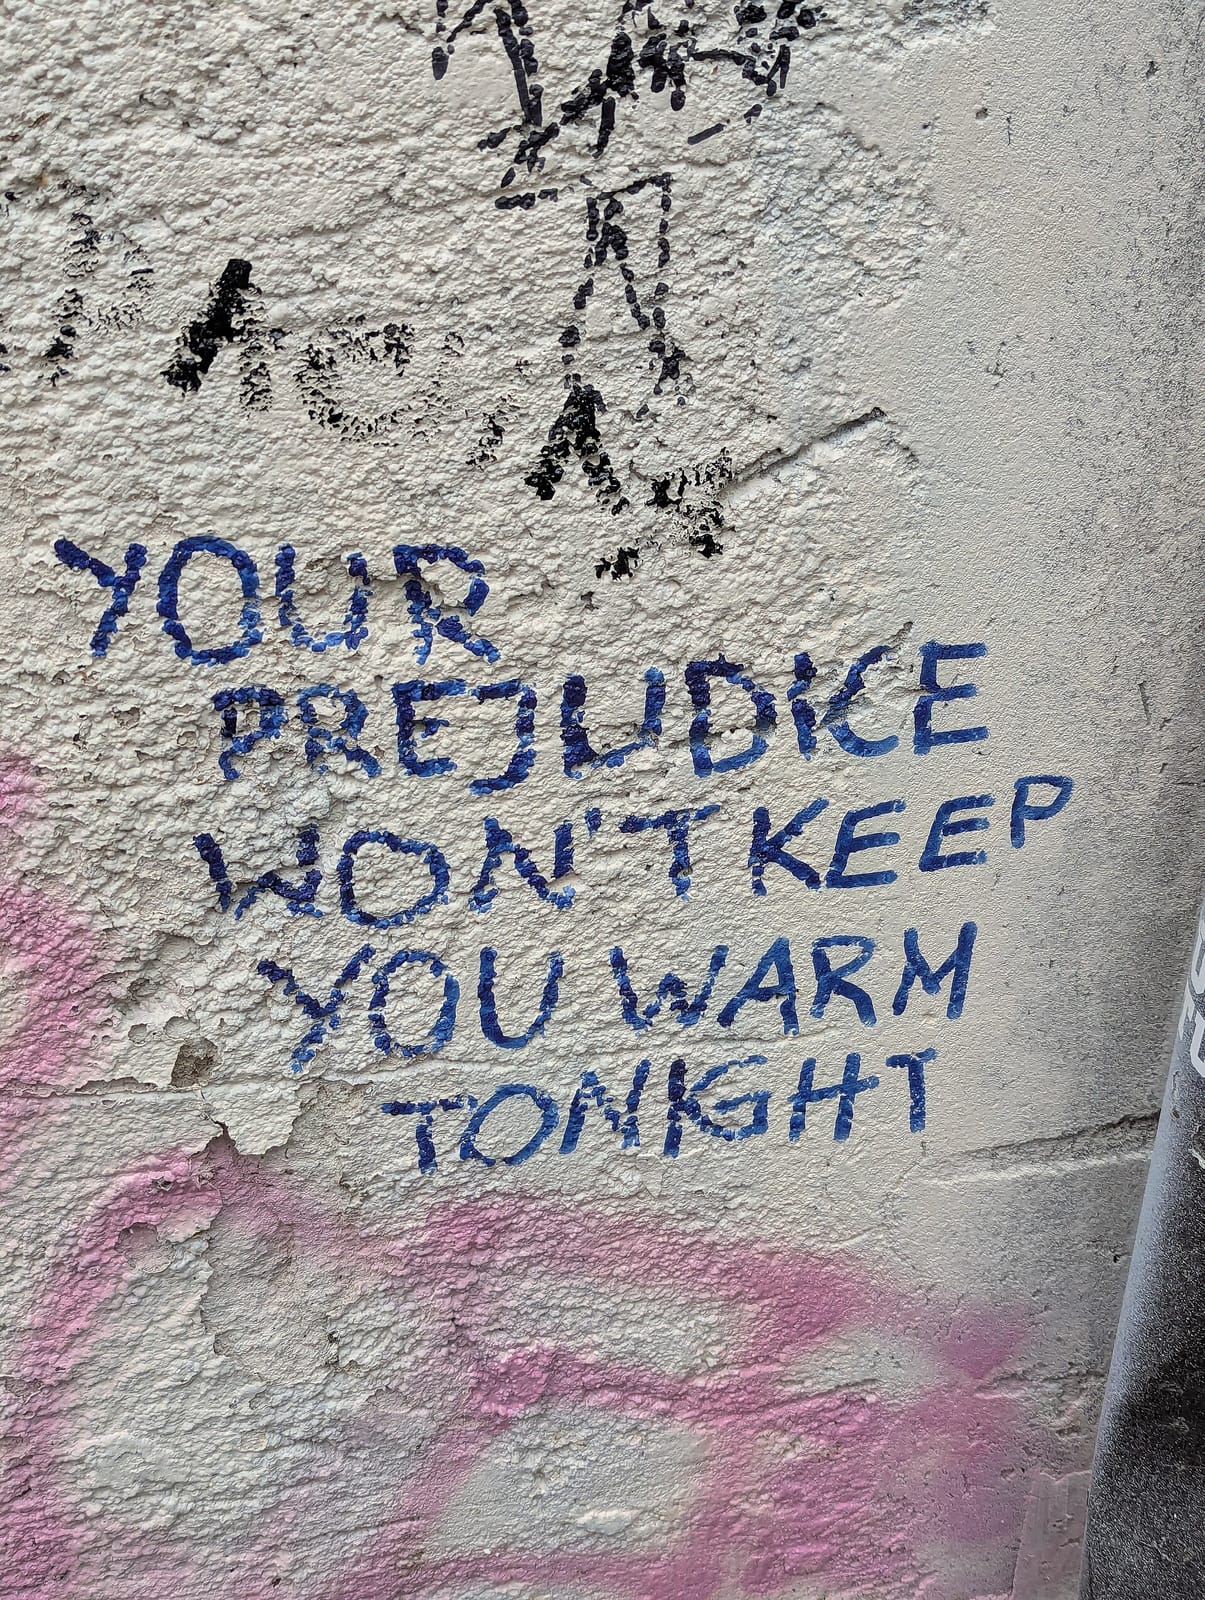 YOUR
PREJUDICE
WON'T KEEP
YOU WARM
TONIGHT